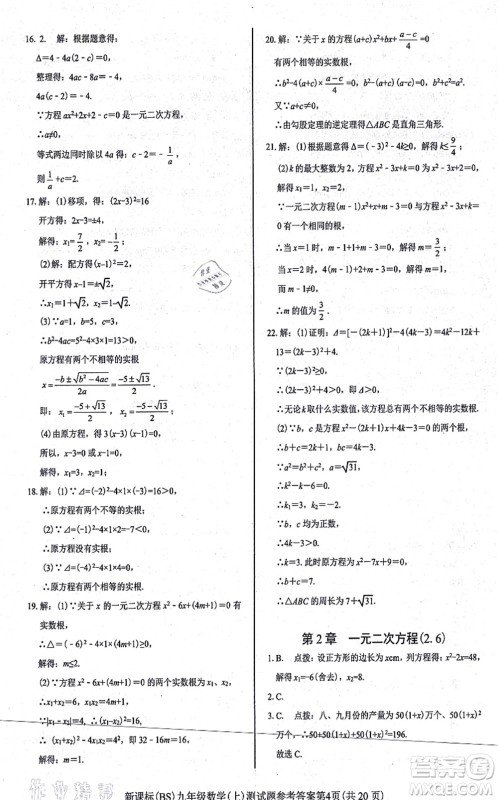 16. 2. 解：根据题意得：
Δ=4-4a(2-c)=0,
整理得：4ac-8a=-4,
4a(c-2)=-4,
∵方程 ax²+2x+2-c=0 是一元二次方程,
∴a≠0,
等式两边同时除以 4a 得：c-2=-1/a,
则 1/a+c=2.
17. 解：(1)移项，得：(2x-3)²=16
开方得：2x-3=±4,
解得：x₁=7/2, x₂=-1/2；
(2)解：配方得(x-1)²=2,
开平方得 x-1=±√2,
∴x₁=1+√2, x₂=1-√2.
(3)∵Δ=5²-4×3×1=13>0,
原方程有两个不相等的实数根
x=(-b±√(b²-4ac))/2a=(-5±√13)/6,
即：x₁=(-5+√13)/6, x₂=(-5-√13)/6；
(4)由原方程，得(x-3)(x-1)=0,
所以, x-3=0 或 x-1=0,
解得, x₁=3, x₂=1.
18. 解：(1)∵Δ=(-2)²-4×1×(-3)=16>0,
∴原方程有两个不相等的实根；
(2)∵Δ=(-1)²-4×1×2=-7<0,
∴原方程没有实根；
(3)∵Δ=2²-4×1×1=0,
∴原方程有两个相等的实根.
19. 解：(1)∵关于 x 的一元二次方程 x²-6x+(4m+1)=0 有
实数根,
∴Δ=(-6)²-4×1×(4m+1)≥0,
解得：m≤2.
(2)∵方程 x²-6x+(4m+1)=0 的两个实数根为 x₁、x₂,
∴x₁+x₂=6, x₁x₂=4m+1,
∴(x₁-x₂)²=(x₁+x₂)²-4x₁x₂=4²,
∵|x₁-x₂|=4, ∴(x₁-x₂)²=16.
即 32-16m=16,
解得：m=1.
20. 解：∵关于 x 的方程(a+c)x²+bx+(a-c)/4=0
有两个相等的实数根,
∴b²-4(a+c)×(a-c)/4=0 即 b²-(a²-c²)=0,
∴b²+c²=a².
又∵a, b, c 为△ABC 的三边长,
∴由勾股定理的逆定理得△ABC 是直角三角形.
21. 解：(1)根据题意得 Δ=(-3)²-4k≥0, 解得 k≤9/4；
(2)k 的最大整数为 2, 方程 x²-3x+k=0 变形为 x²-3x+2=0,
解得 x₁=1, x₂=2,
∵一元二次方程(m-1)x²+x+m-3=0 与方程 x²-3x+k=0
有一个相同的根,
∴当 x=1 时, m-1+1+m-3=0, 解得 m=3/2；
当 x=2 时, 4(m-1)+2+m-3=0, 解得 m=1,
而 m-1≠0,
∴m 的值为 3/2.
22. 解：(1)证明：Δ=[-(2k+1)]²-4(4k-3)=4k²-12k+
13=(2k-3)²+4.
∵(2k-3)²≥0,
∴(2k-3)²+4>0, 即 Δ>0,
∴无论 k 取什么实数值，该方程总有两个不相等的实数根.
(2)∵b、c 是方程 x²-(2k+1)x+4k-3=0 的两个根,
∴b+c=2k+1, bc=4k-3,
∵a²=b²+c², a=√31,
∴k²-k-6=0.
∴k₁=3, k₂=-2.
∵b、c 均为正数,
∴4k-3>0,
∴k=3, 此时原方程为 x²-7x+9=0,
∴b+c=7,
∴△ABC 的周长为 7+√31.
第 2 章 一元二次方程(2.6)
1. B. 点拨：设正方形的边长为 xcm, 列方程得：x²-2x=48,
解得：x₁=8, x₂=-6(舍去). 故选 B.
2. C.
3. C. 点拨：八、九月份的产量为 50(1+x)万个、50(1+x)²万个.
∴50+50(1+x)+50(1+x)²=196.
故选 C.
新课标(BS)九年级数学(上)测试题参考答案第4页(共 20 页)
作业精灵